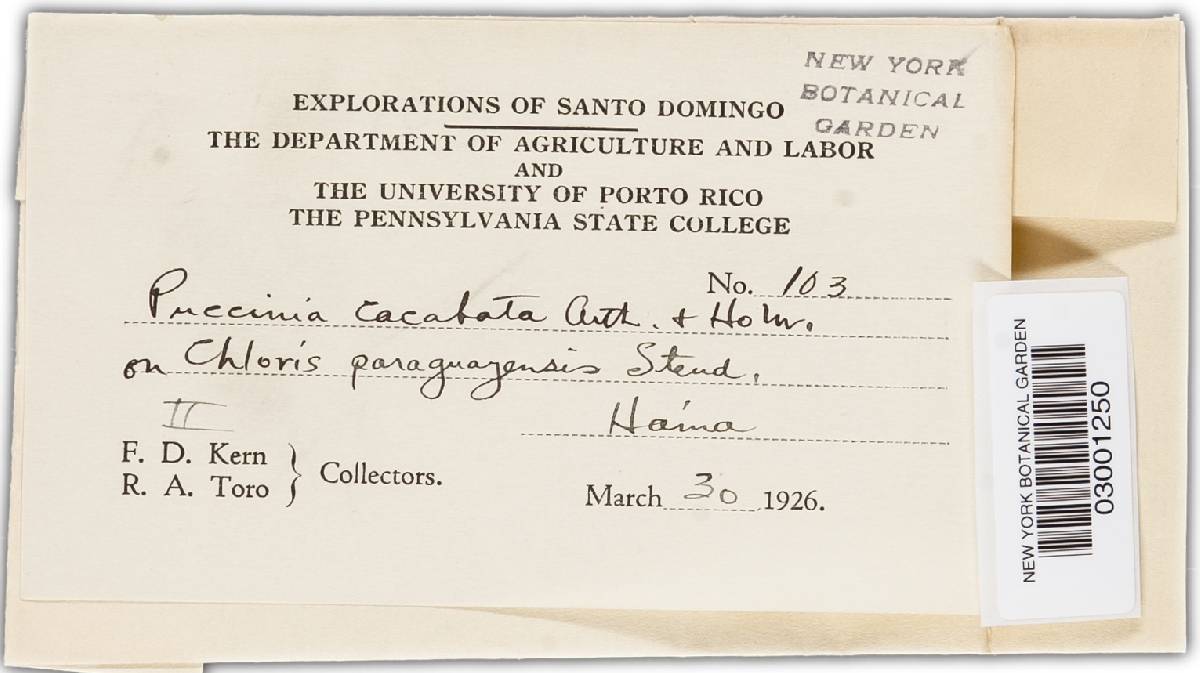 NEW YORK
BOTANICAL
GARDEN
EXPLORATIONS OF SANTO DOMINGO
THE DEPARTMENT OF AGRICULTURE AND LABOR
AND
THE UNIVERSITY OF PORTO RICO
THE PENNSYLVANIA STATE COLLEGE
No. 103
Puccinia cacabata Arth. + Holw.
on Chloris paraguayensis Steud.
II
Haina
F. D. Kern
R. A. Toro
} Collectors.
March 30 1926.
NEW YORK BOTANICAL GARDEN
03001250